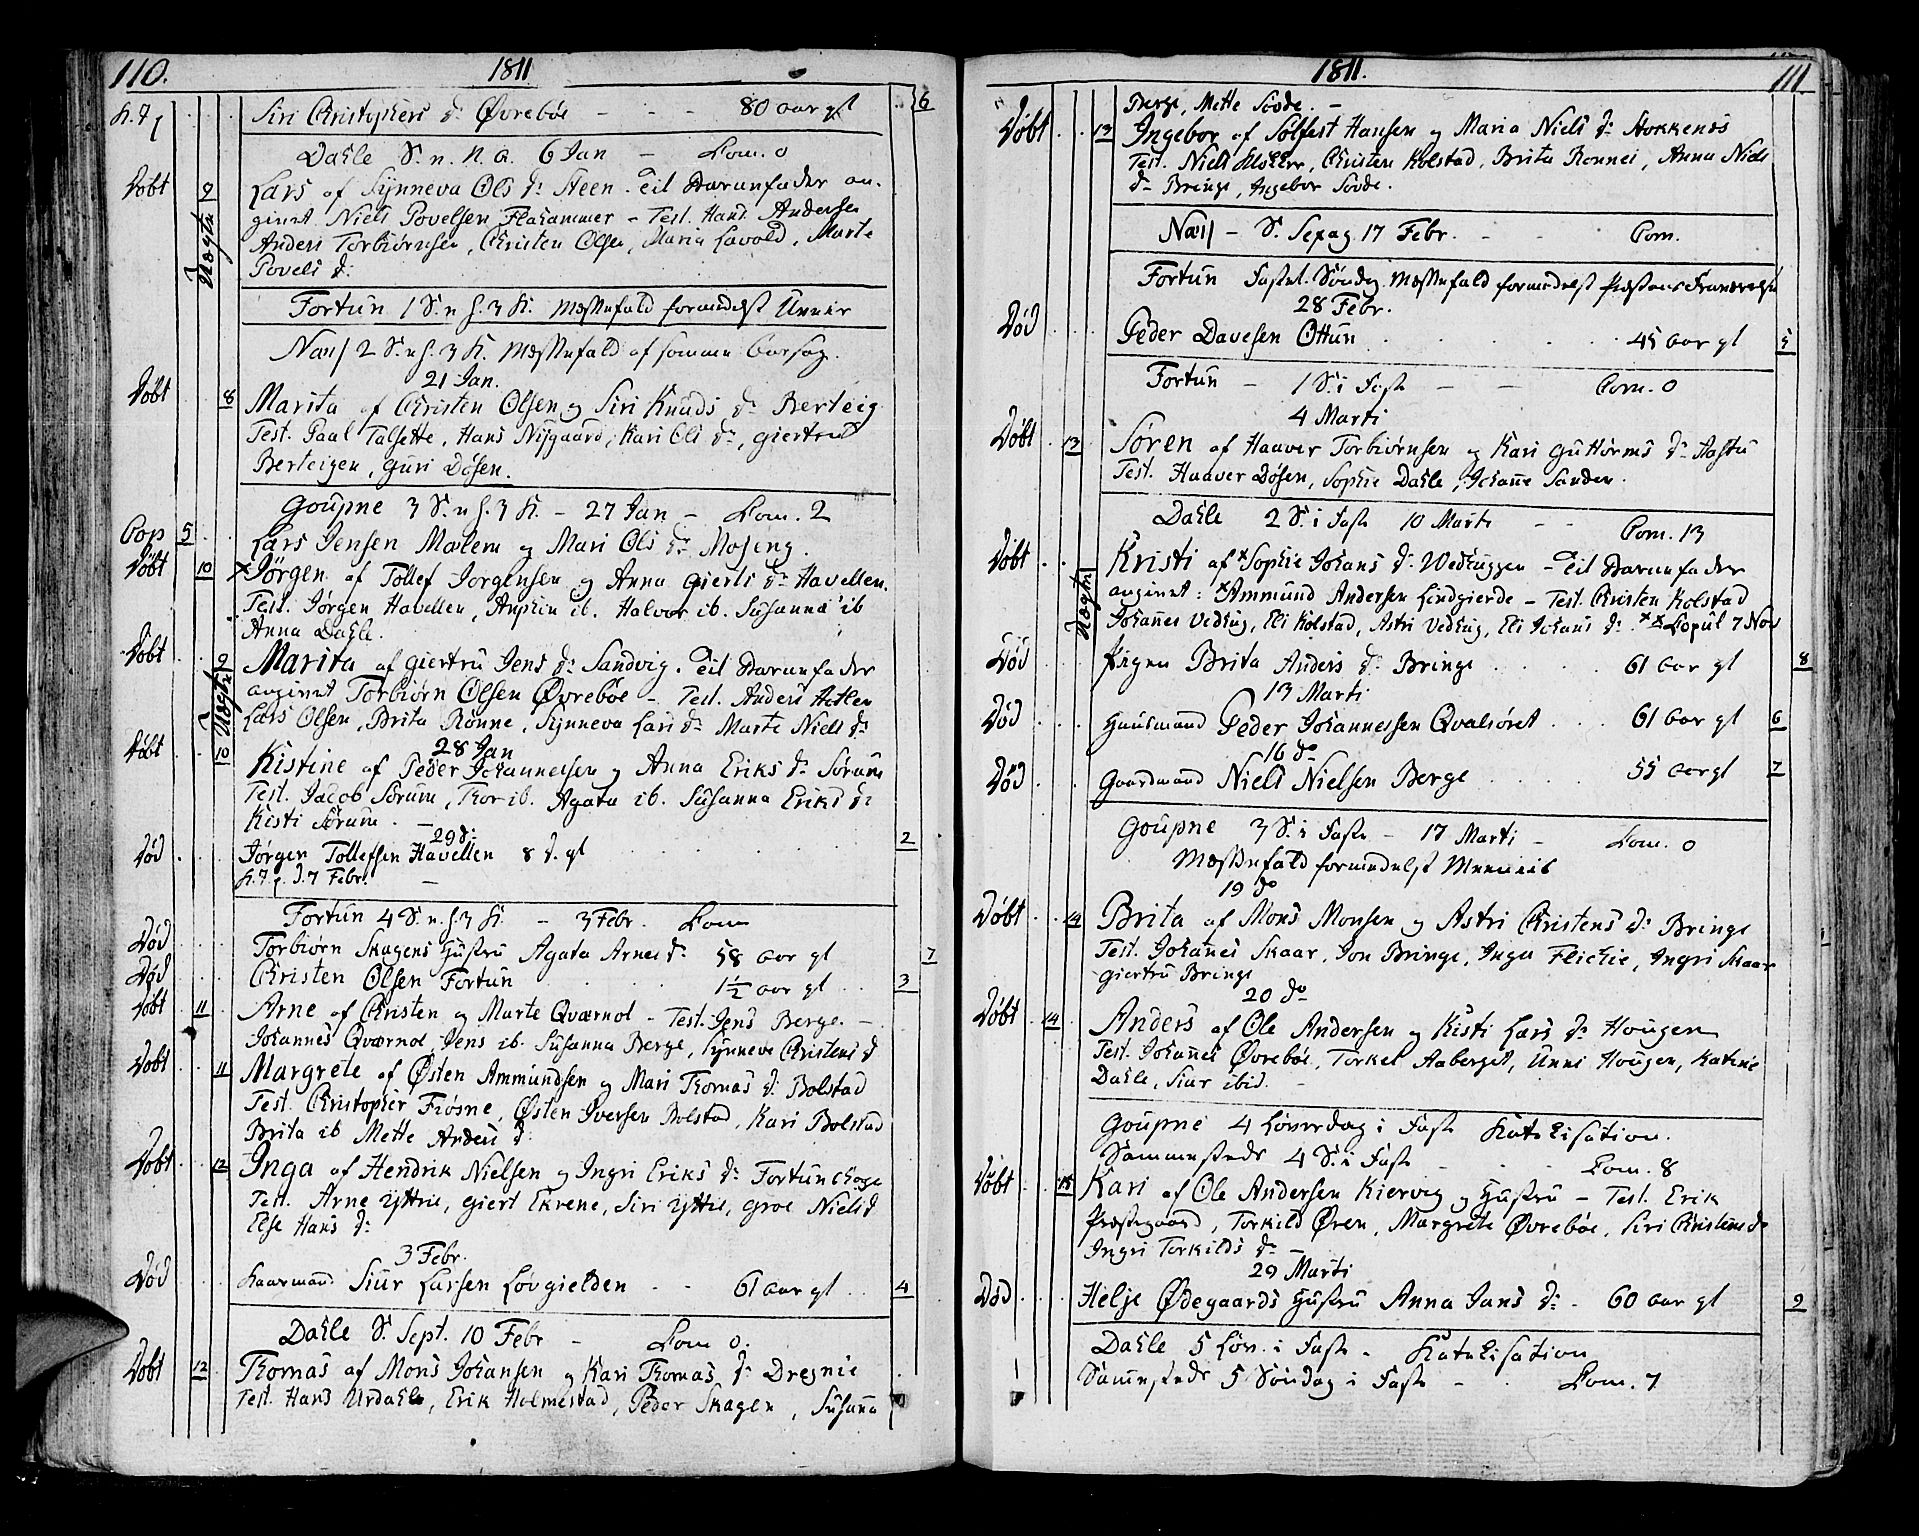 110. 1811
h. 7 1 Siri Christophers d: Øvrebøe - - - 80 aar gl 6
Dahle S. n. N. A. 6 Jan - Com. 0
Døbt 9 Lars af Synneva Ols d: Steen. Til Barnefader an-
Uægte givet Niels Povelsen Flahammer - Test. Hans Andersen
Anders Torbiørnsen, Christen Olsen, Maria Lavold, Marte
Povels d:
Fortun 1 S. n h. 3 K. Messefald formedelst Uveir
Næss 2 S. n h. 3 K. Messefald af samme Aarsag.
21 Jan.
Døbt 8 Marita af Christen Olsen og Siri Knuds d: Berteig
Test. Paal Talsette, Hans Nygaard, Kari Ols d:, Giertrud
Berteigen, Guri Døsen.
Goupne 3 S. n h. 3 K. - 27 Jan - Com. 2
Cop 5 Lars Jensen Mælem og Mari Ols d: Moseng.
Døbt 10 Jørgen af Tollef Jorgensen og Anna Gierts d: Havellen.
Test. Jørgen Havellen, Anphin ib. Halvor ib. Susanna ib
Anna Dahle.
Døbt 9 Marita af Giertru Jens d: Sandvig. Til Barnefader
Uægte angivet Torbiørn Olsen Øvrebøe - Test. Anders Hetlen
Lars Olsen, Brita Rønne, Synneva Lars d: Marte Niels d:
28 Jan
Døbt 10 Kistine af Peder Johannessen og Anna Eriks d: Sørum
Test. Jacob Sørum, Thor ib. Agata ib. Susanna Eriks d:
Kisti Sørum. -
29 d:
Død Jørgen Tollefsen Havellen 8 d. gl 2
h. 7 J. 7 Febr. -
Fortun 4 S. n. h. 3 K. - 3 Febr. Com
Død Torbiørn Skagens Hustru Agata Arnes d: 58 aar gl 7
Død Christen Olsen Fortun 1½ aar gl 3
Døbt 11 Arne af Christen og Marte Qværnol - Test. Jens Berge. -
Johannes Qværnol, Jens ib. Susanna Berge, Synneve Christens d
Døbt 11 Margrete af Østen Ammundsen og Mari Thomas d: Bolstad
Test. Christopher Frøsne, Østen Iversen Bolstad, Kari Bolstad
Brita ib Mette Anders d:
Døbt 12 Inga af Hendrik Nielsen og Ingri Eriks d: Fortun
Test. Arne Yttrie, Giert Ekrene, Siri Yttrie, Groe Niels d
Else Hans d:
3 Febr.
Død Siur Larsen Løvgielden - - 61 aar gl 4
Dahle S. Sept. 10 Febr - Com 0.
Døbt 12 Thomas af Mons Johansen og Kari Thomas d: Dregnie
Test. Hans Urdahle, Erik Holmestad, Peder Skagen, Susana
1811. 111
Berge, Mette Sovde. -
Døbt 13 Ingebor af Sølfest Hansen og Maria Niels d: Hokkenæs
Test. Niels Moller, Christen Kolstad, Brita Ronnei, Anna Niels
d: Bringe, Ingebor Sovde.
Næss - S. Sexag. 17 Febr. - - Com.
Fortun Fastel. Søndag Messefald formedelst Præstens Fraværelse
28 Febr.
Død Peder Davesen Ottun 45 aar gl 5
Fortun - 1 S. i Faste - - Com. 0
4 Marti
Døbt 13 Søren af Haaver Torbiørnsen og Kari Guthorms d: Aastu
Test. Haaver Døsen, Sophie Dahle, Johanne Sanden.
Dahle 2 S. i Faste 10 Marti - - Com. 13
Døbt Kristi af Sophie Johans d: Vedhuggen - Til Barnefader
Uægte angivet: Ammund Andersen Lindgierde - Test. Christen Kolstad
Johannes Vedhug, Eli Kolstad, Astri Vedhug, Eli Johans d: Copul 7 Nov
Død Pigen Brita Anders d: Bringe 61 aar gl 8
13 Marti
Død Huusmand Peder Johannessen Qvalsøret 61 aar gl 6
16 do
Død Gaardmand Niels Nielsen Berge 55 aar gl 7
Goupne 3 S. i Faste - 17 Marti - Com. 0
Messefald formedelst Meeniis
19 do
Døbt 14 Brita af Mons Monsen og Astri Christens d: Bringe
Test. Johannes Skaar, Jon Bringe, Inga Flichie, Ingri Skaar
Giertru Bringe
20 do
Døbt 14 Anders af Ole Andersen og Kisti Lars d: Hougen
Test. Johannes Øvrebøe, Torkel Aaberget, Unni Hougen, Katrine
Dahle, Siur ibid. -
Goupne 4 Løverdag i Faste Katekisation.
Sammesteds 4 S. i Faste - Com. 8
Døbt 15 Kari af Ole Andersen Kiervig og Hustru - Test. Erik
Præstegaard, Torkild Øren, Margrete Øvrebøe, Siri Christens d:
Ingri Torkilds d: -
29 Marti
Død Helje Ødegaards Hustru Anna Jans d: 60 aar gl 9
Dahle 5 Løv. i Faste - Katekisation
Sammesteds 5 Søndag i Faste - Com. 7